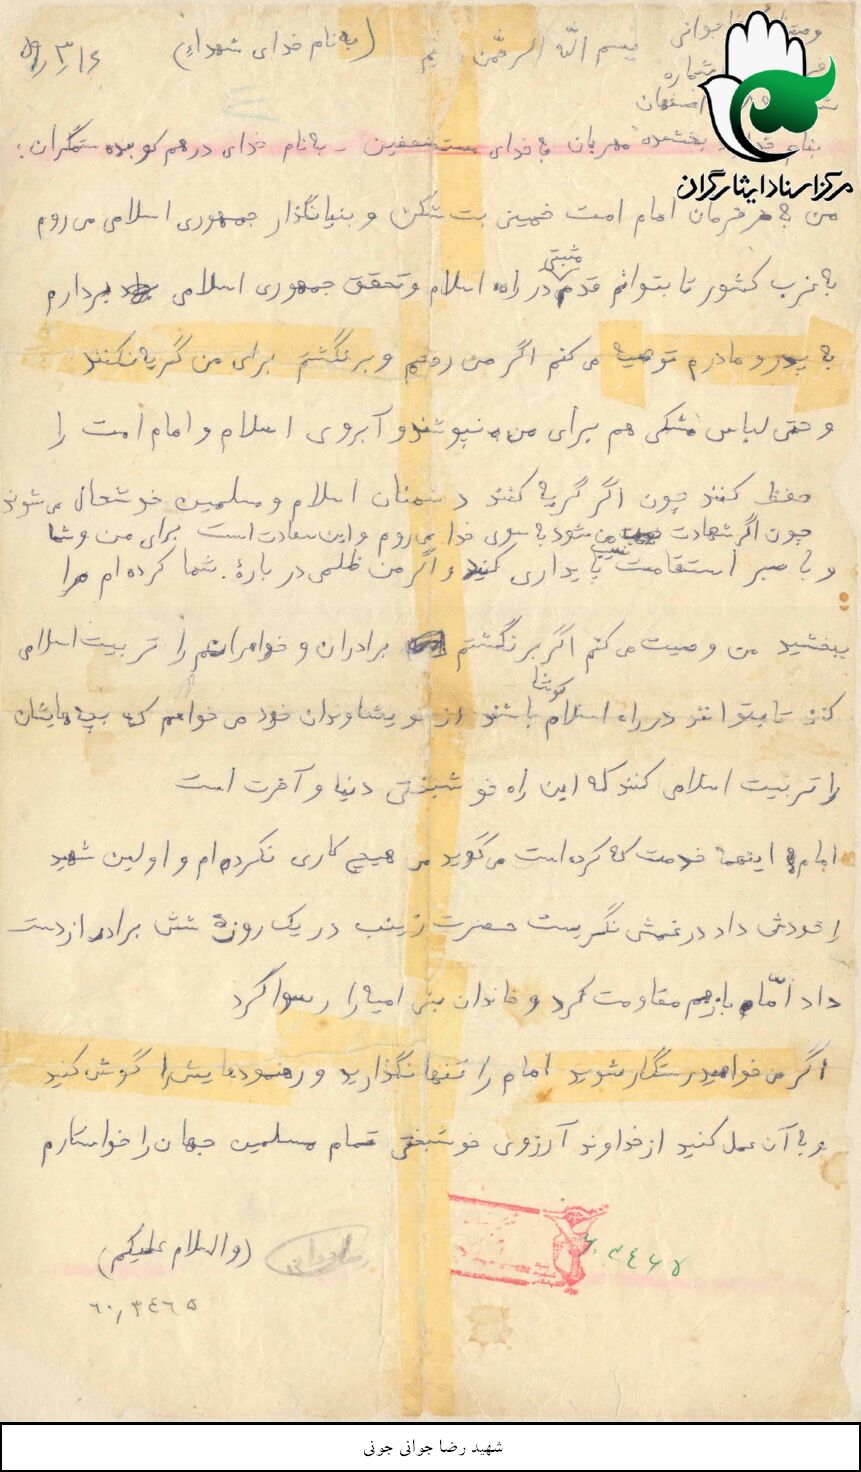 بسم الله الرحمن (به نام خدای شهداء) ۵۹/۳/۱۶
شماره
اصفهان
بنام بخشنده مهربان به خدای مستضعفین - به نام خدای درهم کوبنده ستمگران:
مرکز اسناد ایثارگران
من به فرمان امام امت خمینی بت شکن و بنیانگذار جمهوری اسلامی می روم
به غرب کشور تا بتوانم قدم مثبتی در راه اسلام و تحقق جمهوری اسلامی بردارم
به پدر و مادرم توصیه می کنم اگر من رفتم و برنگشتم برای من گریه نکنند
و حتی لباس مشکی هم برای من نپوشند و آبروی اسلام و امام امت را
حفظ کنند چون اگر گریه کنند دشمنان اسلام و مسلمین خوشحال می شوند
چون اگر شهادت نصیب من شود به سوی خدا می روم و این سعادت است برای من و شما
و با صبر استقامت پایداری کنید و اگر من ظلمی در بارهٔ شما کرده ام مرا
ببخشید من وصیت می کنم اگر برنگشتم برادران و خواهرانم را تربیت اسلامی
کنند تا بتوانند در راه اسلام کوشا باشند از خویشاوندان خود می خواهم که بچه هایشان
را تربیت اسلامی کنند که این راه خوشبختی دنیا و آخرت است
امام با اینهمه خدمت که کرده است می گوید من هیچ کاری نکرده ام و اولین شهید
را خودش داد در غمش نگریست حضرت زینب در یک روزه شش برادر از دست
داد امّا باز هم مقاومت کرد و خاندان بنی امیه را رسوا کرد
اگر می خواهید رستگار شوید امام را تنها نگذارید و رهنمودهایش را گوش کنید
و به آن عمل کنید از خداوند آرزوی خوشبختی تمام مسلمین جهان را خواستارم
(والسلام علیکم)
۶۰,۳۴۶۵
شهید رضا جوانی جونی